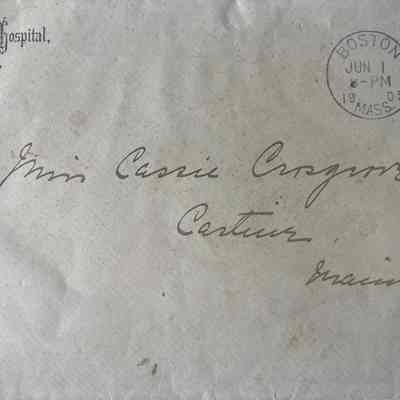 Hospital,
BOSTON
JUN 1
-PM
19 05
MASS.
Miss Cassie Cosgrove
Castine
Main